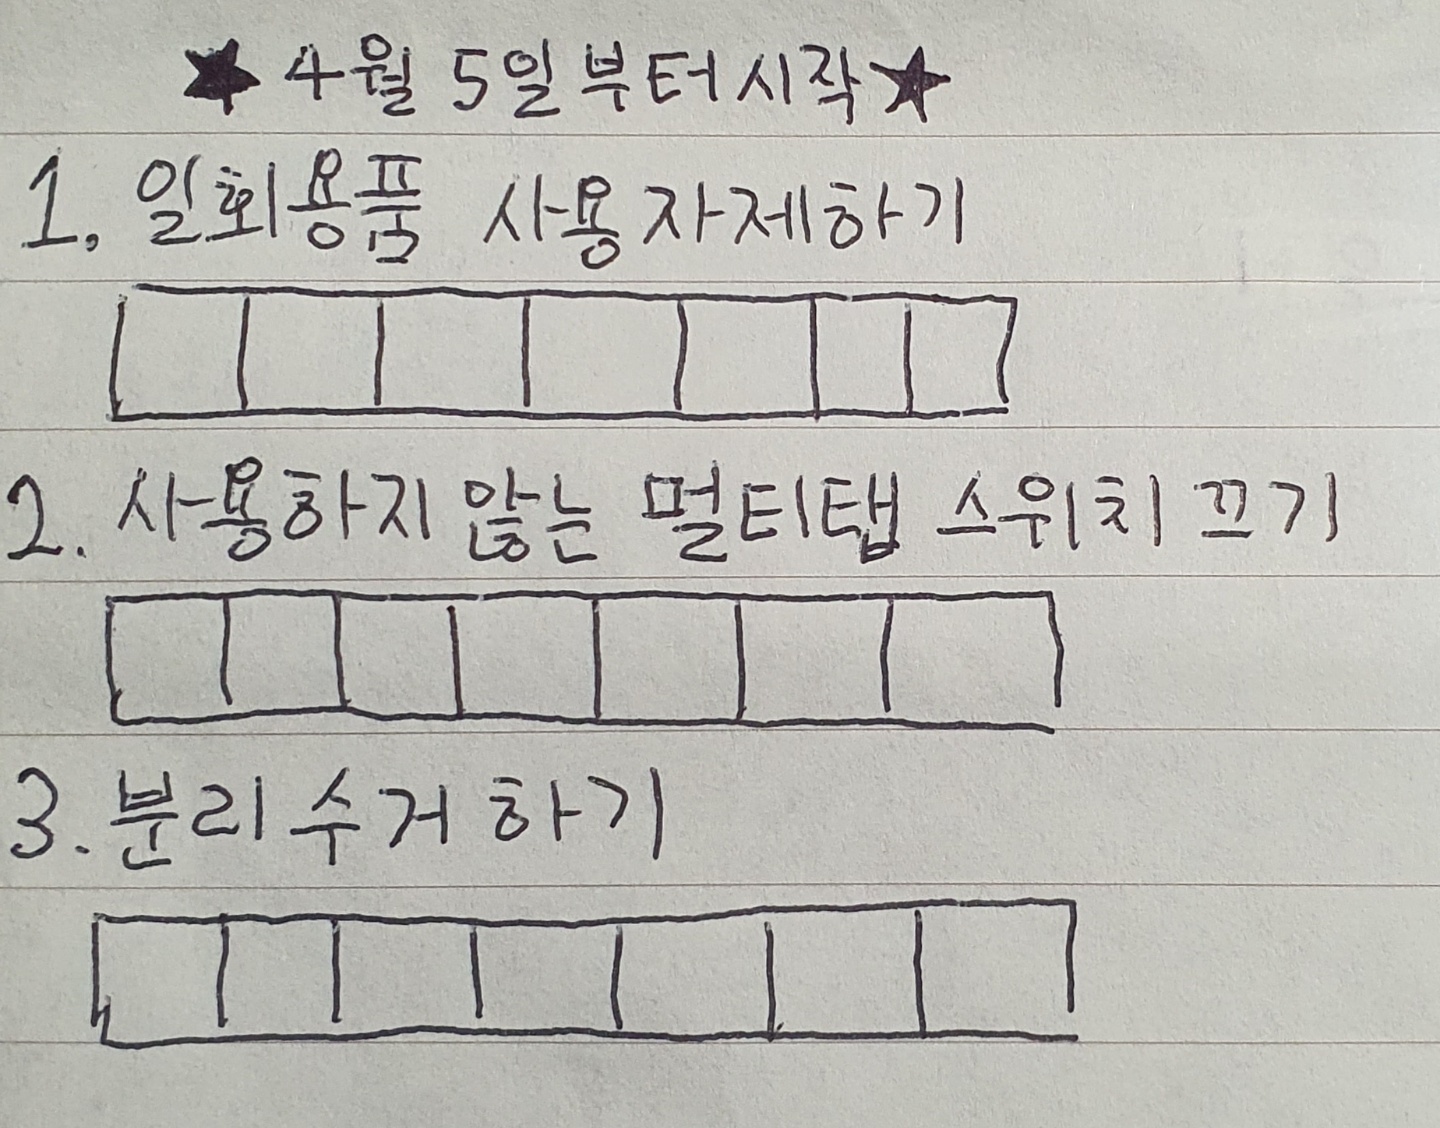 ★4월 5일부터시작★
1. 일회용품 사용자제하기
2. 사용하지않는 멀티탭 스위치 끄기
3. 분리수거하기